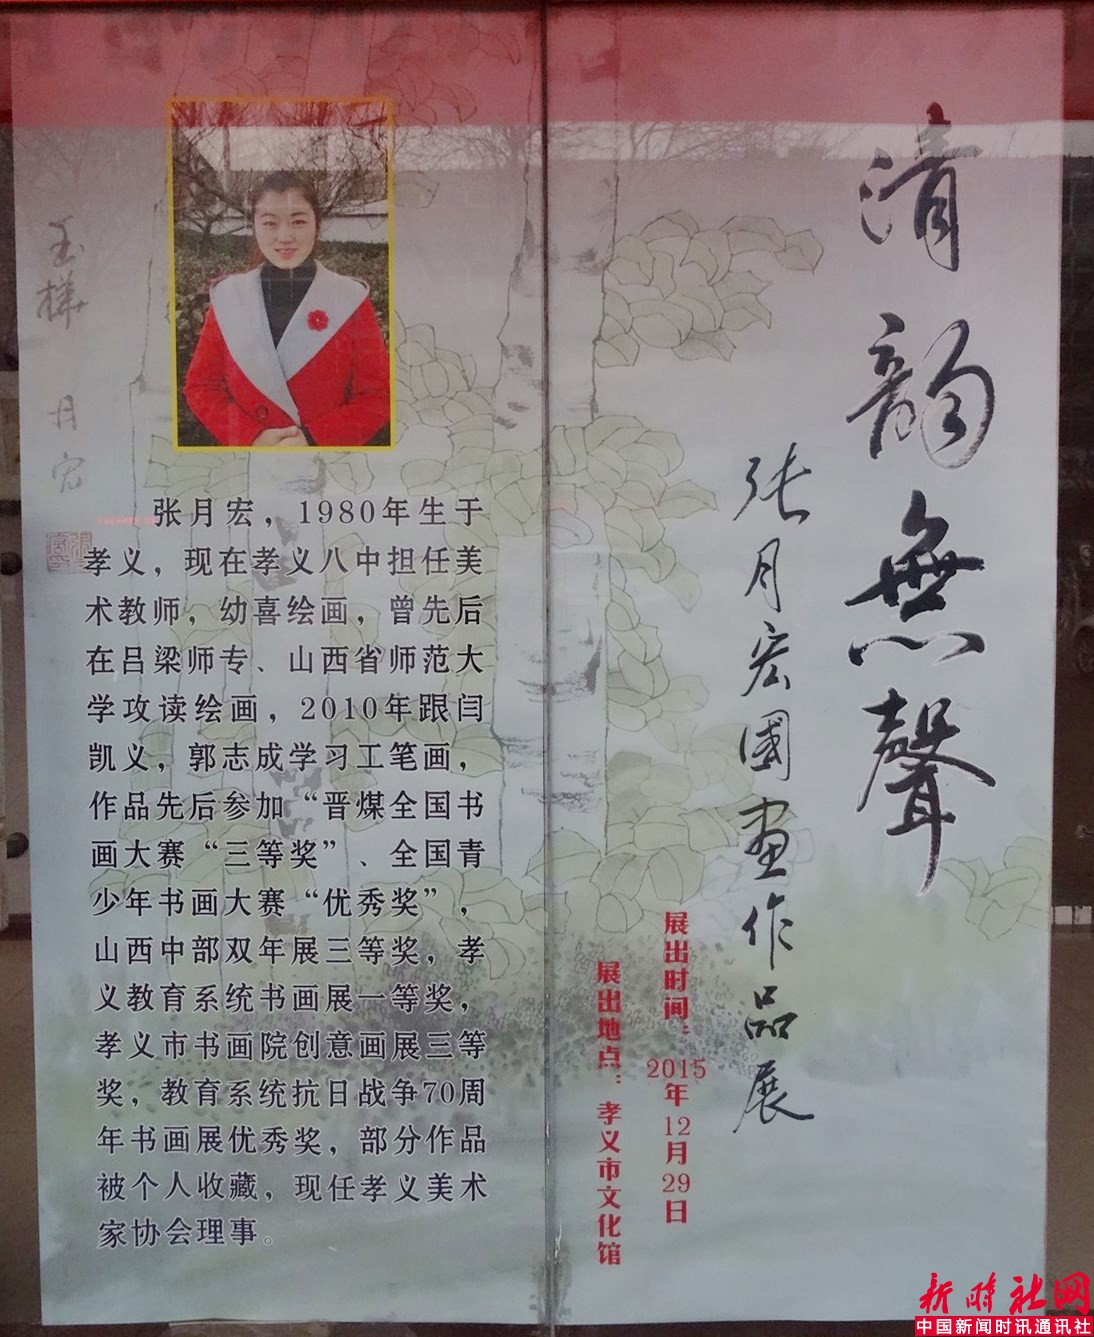 清韵無聲
张月宏國畫作品展
展出时间：2015年12月29日
展出地点：孝义市文化馆
月宏
张月宏，1980年生于
孝义，现在孝义八中担任美
术教师，幼喜绘画，曾先后
在吕梁师专、山西省师范大
学攻读绘画，2010年跟闫
凯义，郭志成学习工笔画，
作品先后参加“晋煤全国书
画大赛“三等奖”、全国青
少年书画大赛“优秀奖”，
山西中部双年展三等奖，孝
义教育系统书画展一等奖，
孝义市书画院创意画展三等
奖，教育系统抗日战争70周
年书画展优秀奖，部分作品
被个人收藏，现任孝义美术
家协会理事。
新时社网
中国新闻时讯通讯社